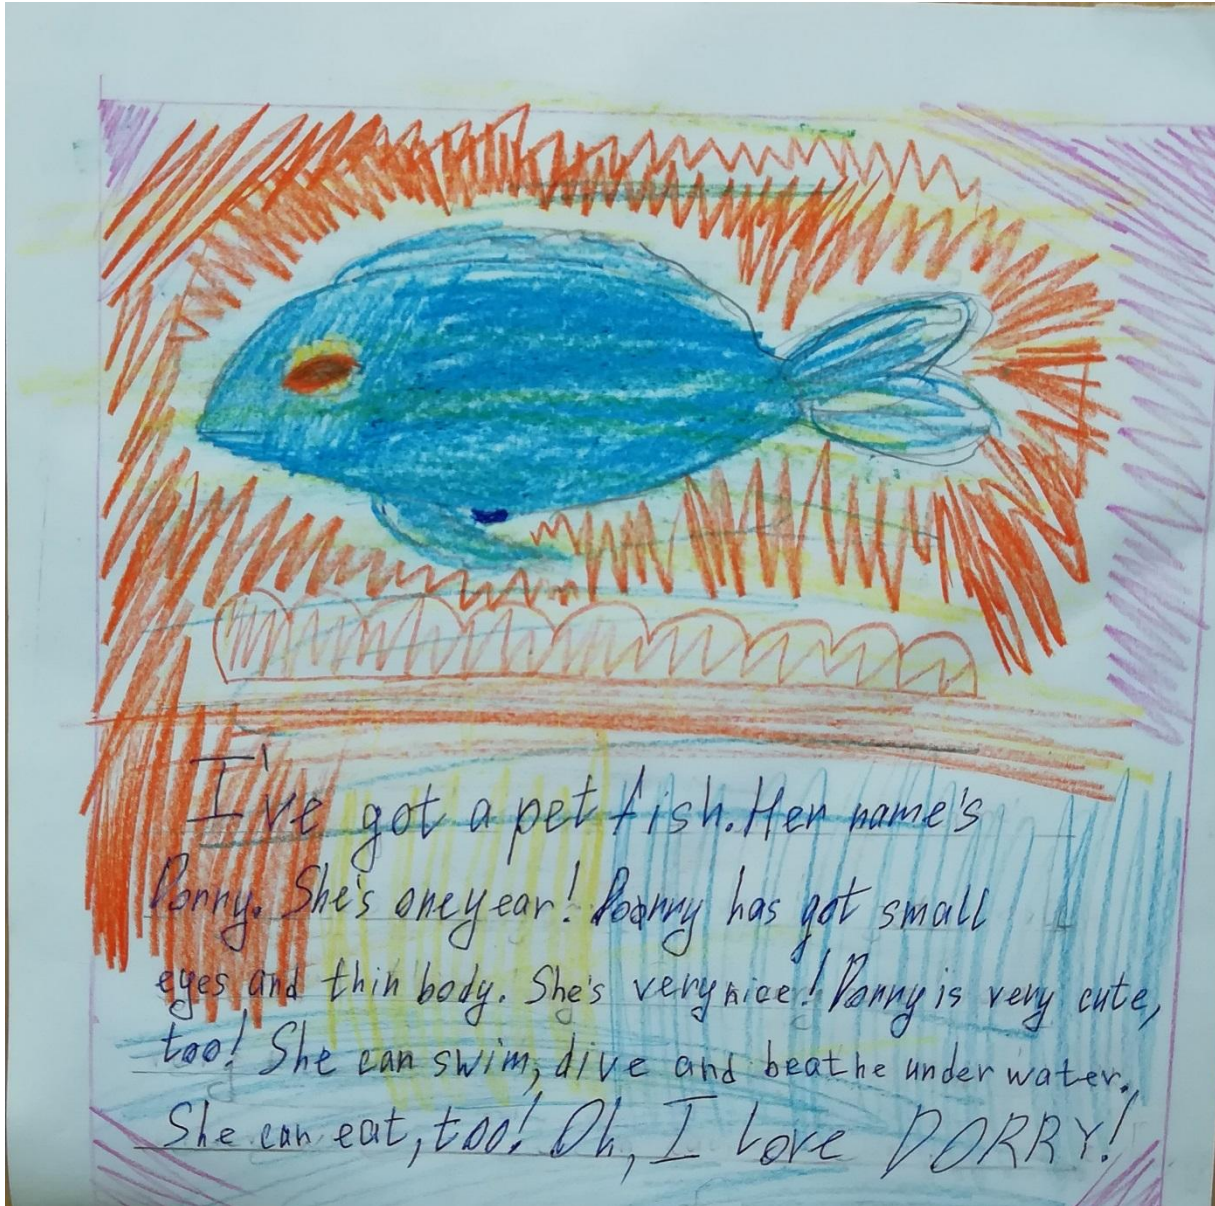 I've got a pet fish. Her name's
Dorry. She's one year! Dorry has got small
eyes and thin body. She's very nice! Dorry is very cute,
too! She can swim, dive and beathe under water.
She can eat, too! Oh, I love DORRY!